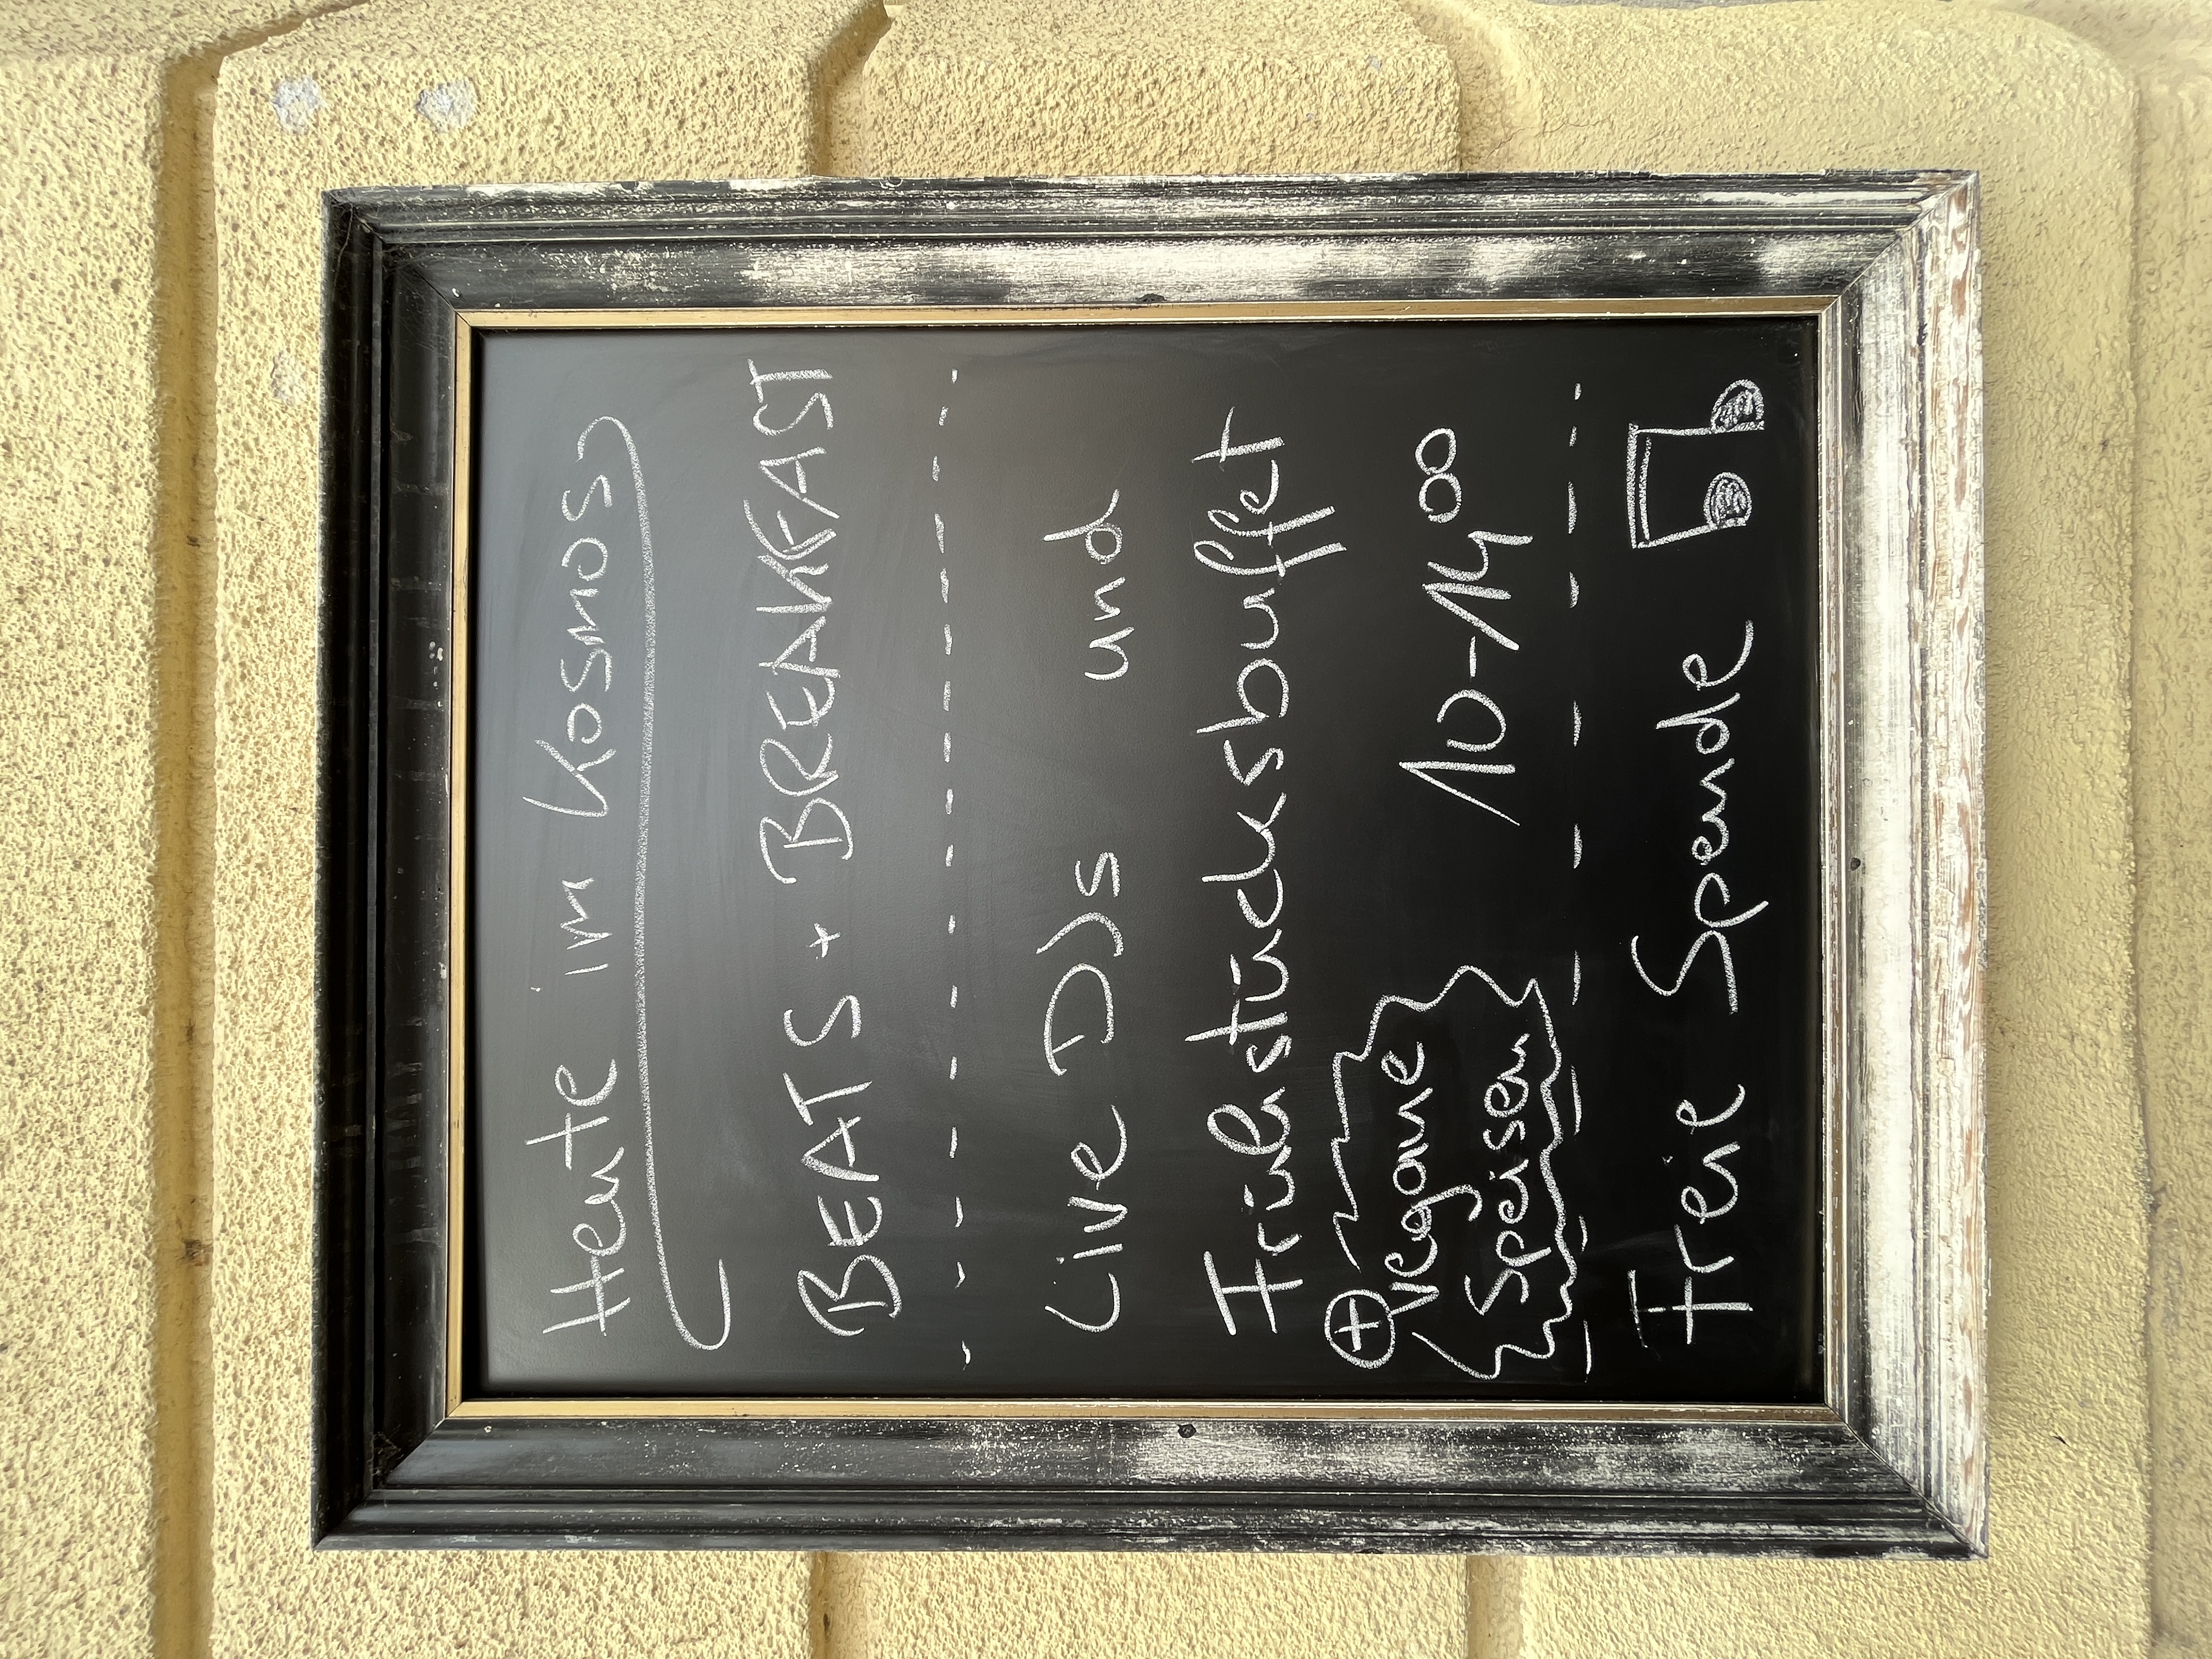 Heute im Kosmos
BEATS + BREAKFAST
Live DJs und
Frühstücksbuffet
10-14 00
+ vegane
Speisen
Freie Spende